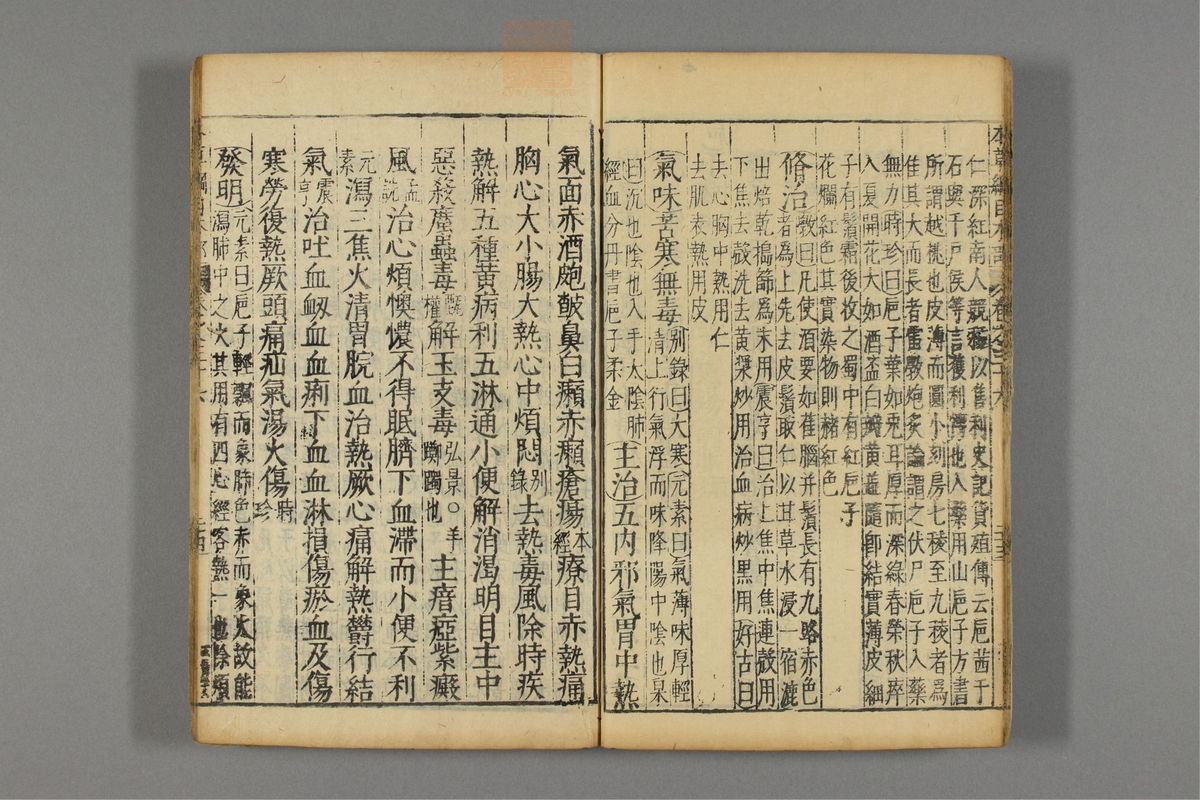 本草綱目木部 卷之三十六 二十三
仁深紅南人競種以售利史記貨殖傳云巵茜千
石與千戸侯等言獲利博也入藥用山巵子方書
所謂越桃也皮薄而圓小刻房七稜至九稜者爲
隹其大而長者雷斅炮炙論謂之伏尸巵子入藥
無力時珍曰巵子葉如兎耳厚而深緑春榮秋瘁
入夏開花大如酒盃白瓣黄蕋隨卽結實薄皮細
子有鬚霜後收之蜀中有紅巵子
花爛紅色其實染物則赭紅色
脩治斅曰凡使須要如雀腦并鬚長有九路赤色
者為上先去皮鬚取仁以甘草水浸一宿漉
出焙乾搗篩爲末用震亨曰治上焦中焦連殻用
下焦去殻洗去黄漿炒用治血病炒黒用好古曰
去心胸中熱用仁
去肌表熱用皮
氣味苦寒無毒别錄曰大寒元素曰氣薄味厚輕
清上行氣浮而味降陽中陰也杲
曰沉也陰也入手太陰肺
經血分丹書巵子柔金
主治五内邪氣胃中熱
氣面赤酒皰皶鼻白癩赤癩瘡瘍本經療目赤熱痛
胸心大小腸大熱心中煩悶别錄去熱毒風除時疾
熱解五種黄病利五淋通小便解消渴明目主中
惡殺䗪蟲毒甄權解玉支毒弘景○羊躑躅也主瘖瘂紫癜
風孟詵治心煩懊憹不得眠臍下血滯而小便不利
元素瀉三焦火清胃脘血治熱厥心痛解熱鬱行結
氣震亨治吐血衂血血痢下血血淋損傷瘀血及傷
寒勞復熱厥頭痛疝氣湯火傷時珍
發明元素曰巵子輕飄而象肺色赤而象火故能
瀉肺中之火其用有四心經客熱一也除煩